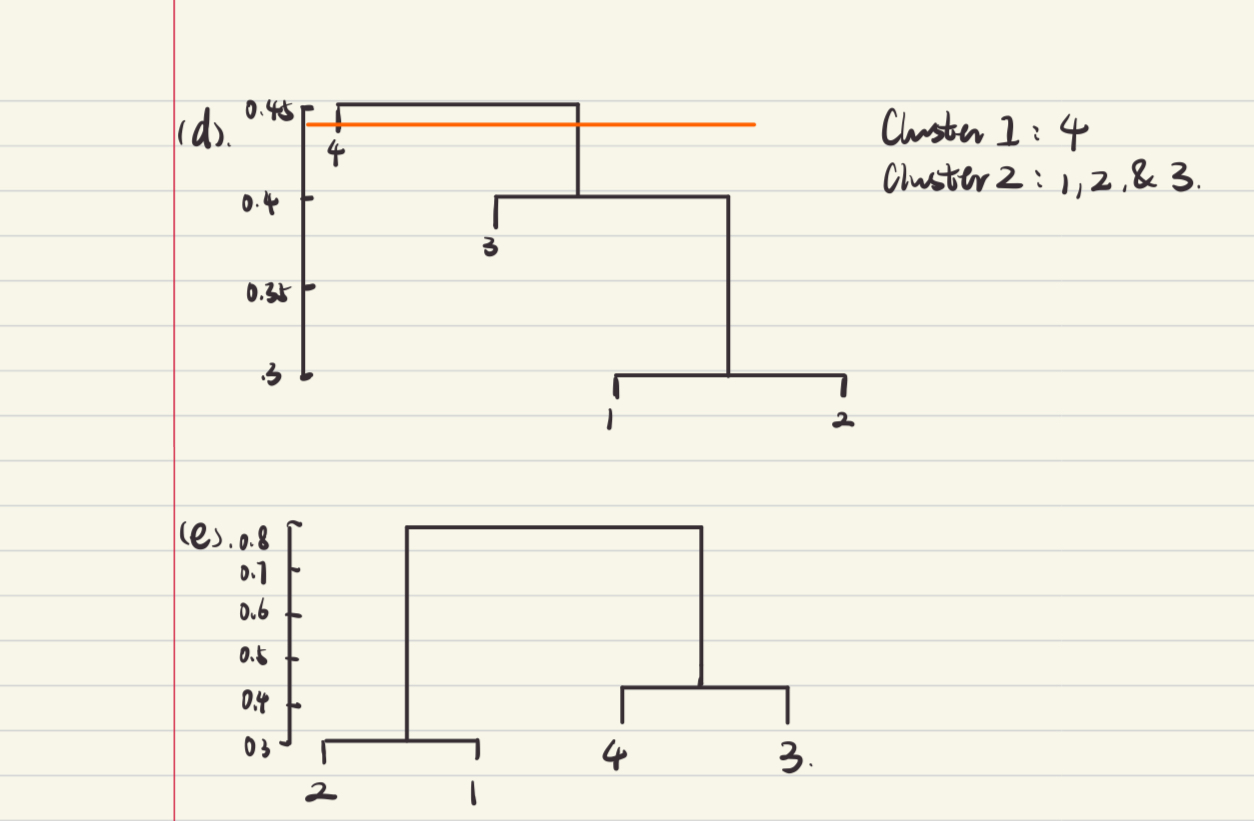 (d).
0.45
4
0.4
3
0.35
.3
1 2
Cluster 1 : 4
Cluster 2 : 1, 2, & 3.
(e).
0.8
0.7
0.6
0.5
0.4
0.3
4 3.
2 1